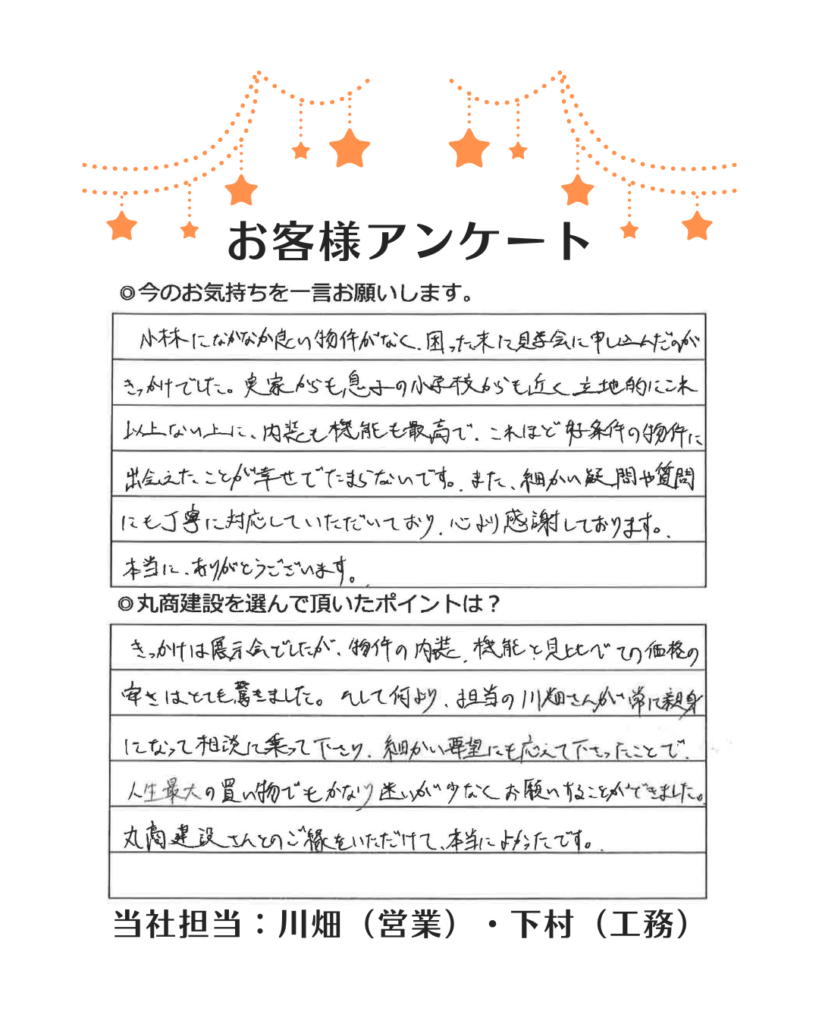 お客様アンケート
◎今のお気持ちを一言お願いします。
小林になかなか良い物件がなく、困った末に見学会に申し込んだのが
きっかけでした。実家からも息子の小学校からも近く立地的にこれ
以上ない上に、内装も機能も最高で、これほど好条件の物件に
出会えたことが幸せでたまらないです。また、細かい疑問や質問
にも丁寧に対応していただいており、心より感謝しております。
本当に、ありがとうございます。
◎丸商建設を選んで頂いたポイントは？
きっかけは展示会でしたが、物件の内装、機能と見比べての価格の
安さはとても驚きました。そして何より、担当の川畑さんが常に親身
になって相談に乗って下さり、細かい要望にも応えて下さったことで、
人生最大の買い物でもかなり迷いが少なくお願いすることができました。
丸商建設さんとのご縁をいただけて、本当によかったです。
当社担当：川畑（営業）・下村（工務）